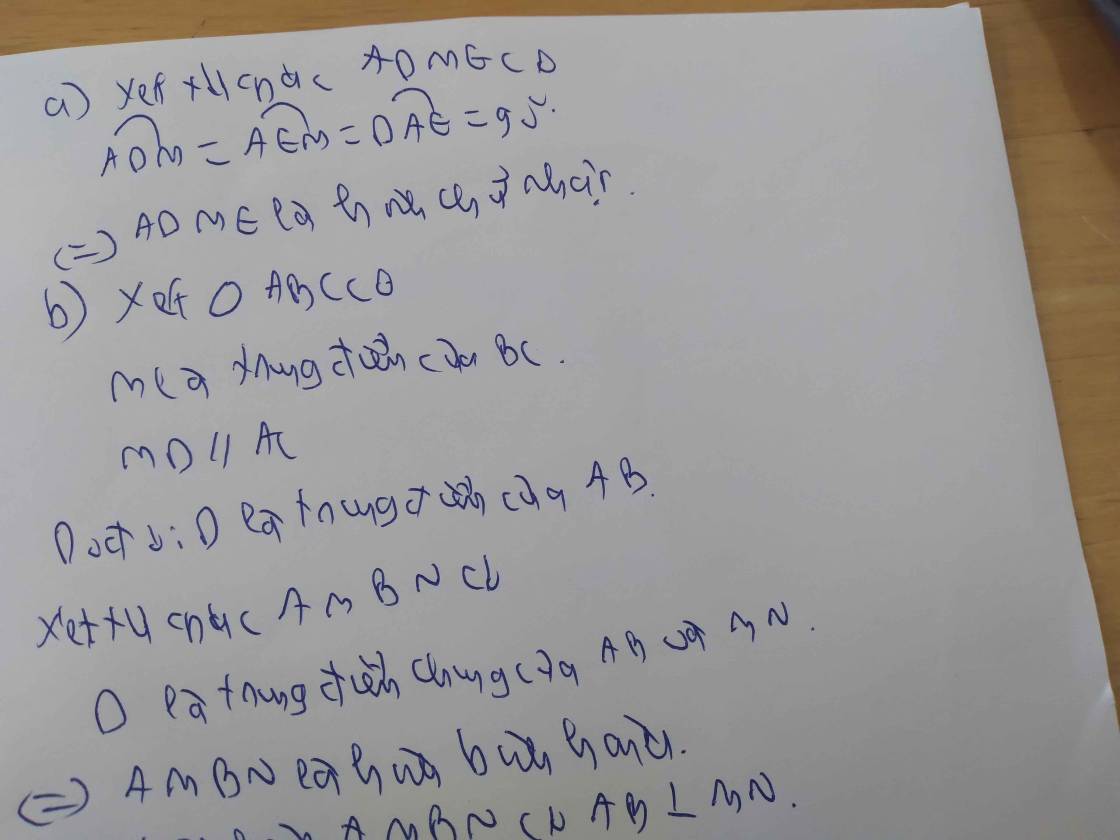 a) Xét tứ giác ADME có
ADM = AEM = DAE = 90°.
(=) ADME là hình chữ nhật.
b) Xét △ ABC có
M là trung điểm của BC.
MD // AC
Do đó: D là trung điểm của AB.
Xét tứ giác AMBN có
D là trung điểm chung của AB và MN.
(=) AMBN là hình bình hành.
AMBN có AB ⊥ MN.